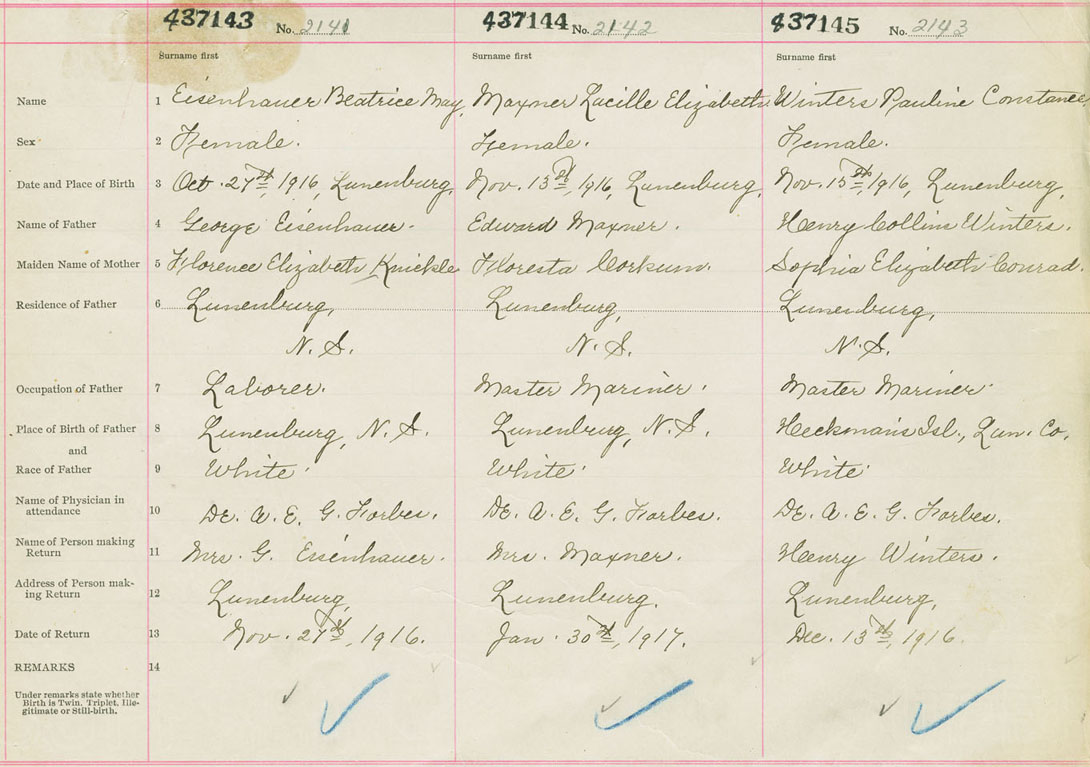 437143 No. 2141 437144 No. 2142 437145 No. 2143
Surname first Surname first Surname first
Name 1 Eisenhauer Beatrice May, Maxner Lucille Elizabeth Winters Pauline Constance,
Sex 2 Female. Female. Female.
Date and Place of Birth 3 Oct. 27th, 1916, Lunenburg, Nov. 13th, 1916, Lunenburg, Nov. 15th, 1916, Lunenburg,
Name of Father 4 George Eisenhauer. Edward Maxner. Henry Collins Winters.
Maiden Name of Mother 5 Florence Elizabeth Knickle Floresta Corkum. Sophia Elizabeth Conrad.
Residence of Father 6 Lunenburg, Lunenburg, Lunenburg,
N.S. N.S. N.S.
Occupation of Father 7 Laborer. Master Mariner. Master Mariner.
Place of Birth of Father 8 Lunenburg, N.S. Lunenburg, N.S. Heckman's Isl., Lun. Co.
and
Race of Father 9 White. White. White.
Name of Physician in
attendance 10 Dr. A. E. G. Forbes. Dr. A. E. G. Forbes. Dr. A. E. G. Forbes.
Name of Person making
Return 11 Mrs. G. Eisenhauer. Mrs. Maxner. Henry Winters.
Address of Person mak-
ing Return 12 Lunenburg, Lunenburg. Lunenburg,
Date of Return 13 Nov. 27th, 1916. Jan. 30th, 1917. Dec. 13th, 1916.
REMARKS 14
Under remarks state whether
Birth is Twin. Triplet, Ille-
gitimate or Still-birth.